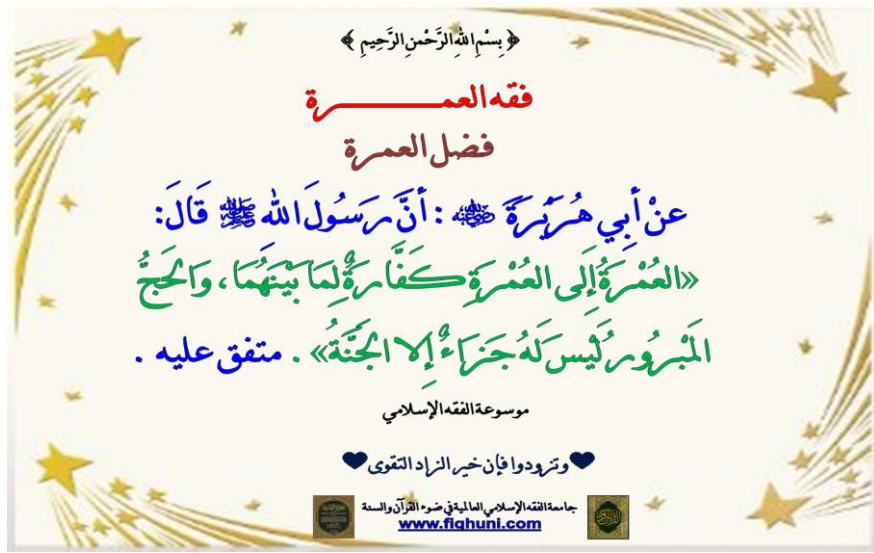 ﴿ بِسْمِ اللهِ الرَّحْمنِ الرَّحِيمِ ﴾
فقه العمــــــــرة
فضل العمرة
عنْ أَبِي هُرَيْرَةَ رضي الله عنه : أنَّ رَسُولَ الله ﷺ قَالَ:
«العُمْرَةُ إِلَى العُمْرَةِ كَفَّارَةٌ لِمَا بَيْنَهُمَا، وَالحَجُّ
المَبْرُورُ لَيْسَ لَهُ جَزَاءٌ إِلا الجَنَّةُ» . متفق عليه .
موسوعة الفقه الإسلامي
وتزودوا فإن خير الزاد التقوى
جامعة الفقه الإسلامي العالمية في ضوء القرآن والسنة
www.fiqhuni.com